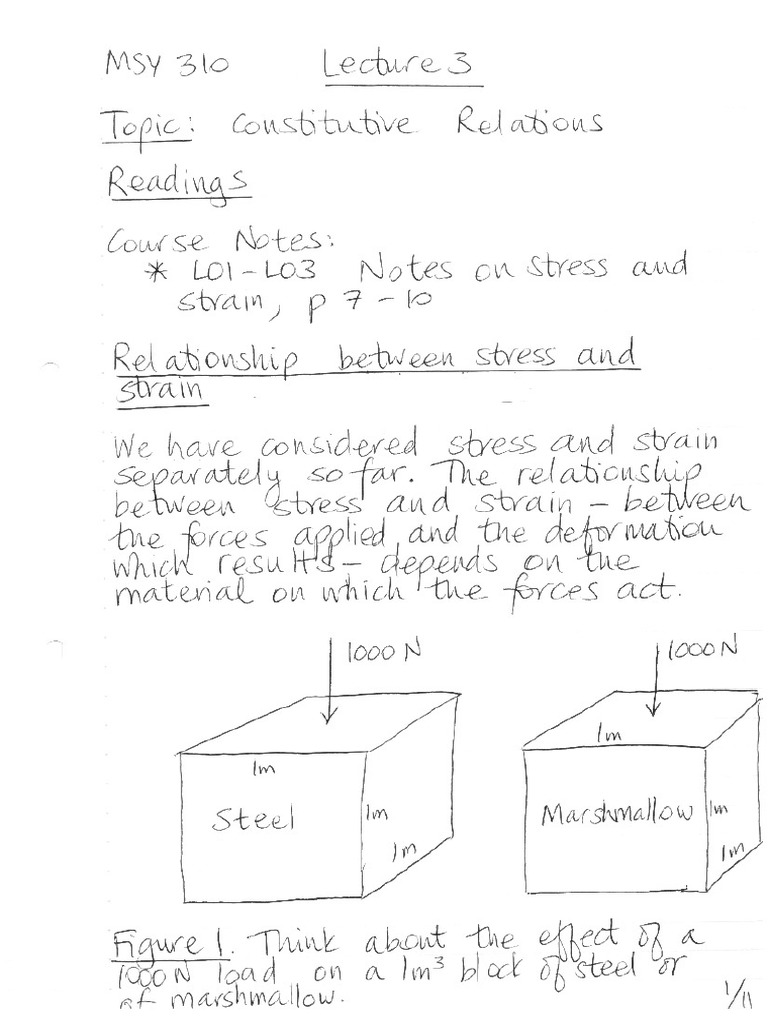 MSY 310 Lecture 3
Topic: Constitutive Relations
Readings
Course Notes:
* L01-L03 Notes on stress and
strain, p 7-10
Relationship between stress and
strain
We have considered stress and strain
separately so far. The relationship
between stress and strain - between
the forces applied and the deformation
which results - depends on the
material on which the forces act.
1000 N
1000 N
1m
Steel
1m
1m
1m
Marshmallow
1m
1m
Figure 1. Think about the effect of a
1000 N load on a 1m³ block of steel or
of marshmallow.
1/11